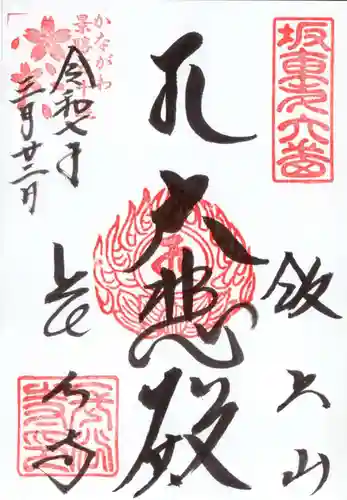 坂東第六番
飯上山
大悲殿
かながわ
景勝
令和七年
三月廿二日
長谷寺